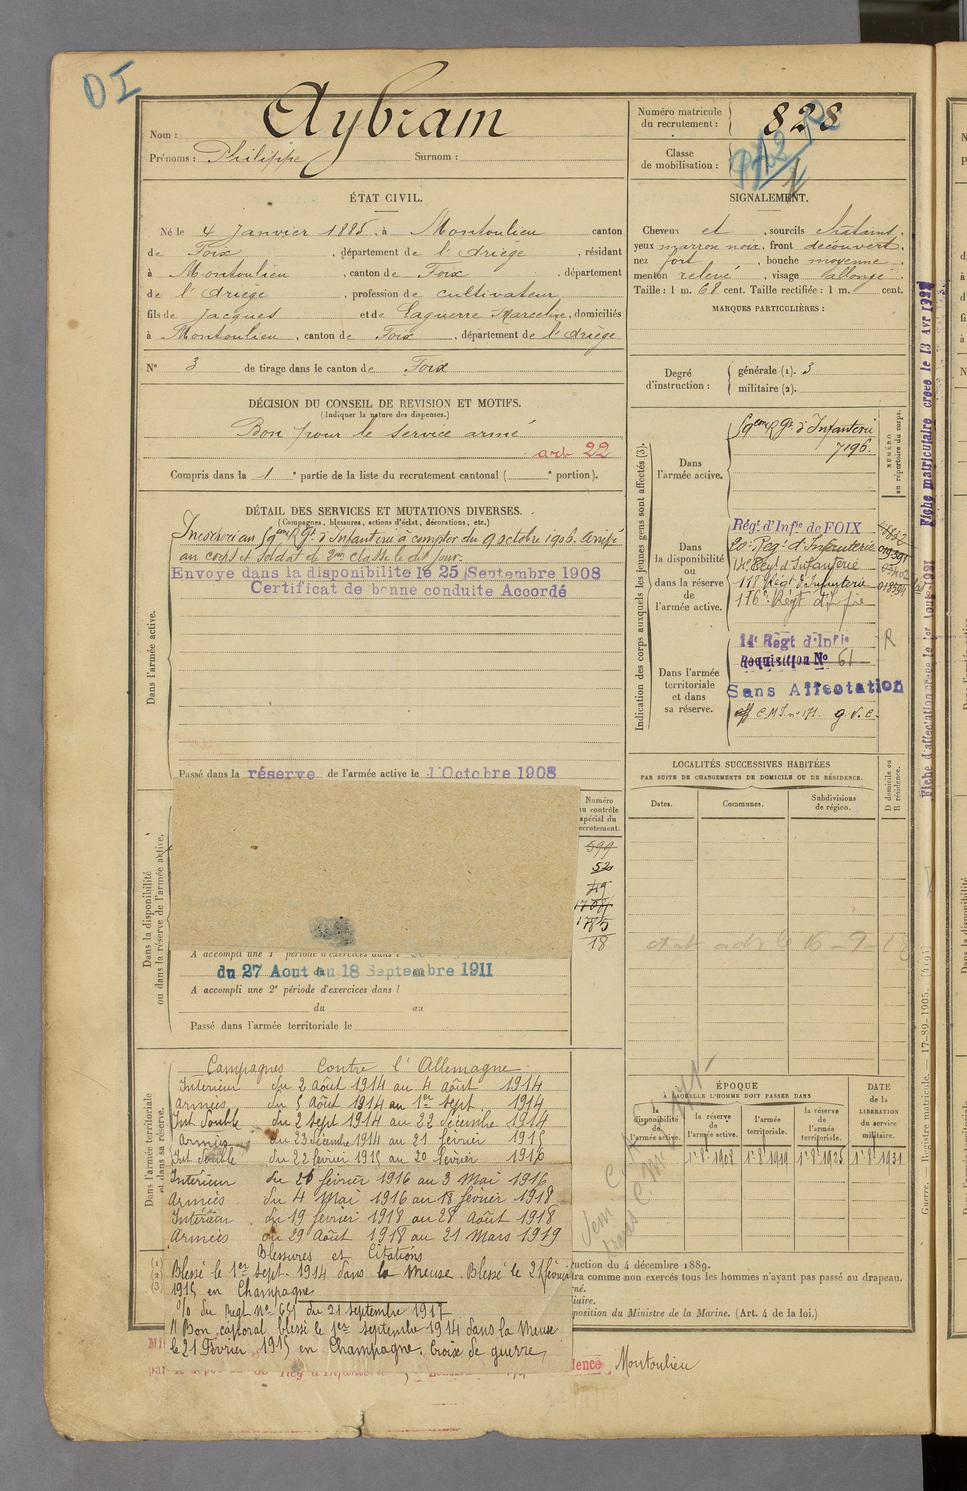 DI
Nom : Aybram
Prénoms : Philippe Surnom :
Numéro matricule du recrutement : 828
Classe de mobilisation :
ÉTAT CIVIL.
Né le 4 Janvier 1885, à Montoulieu canton
de Foix, département de l'Ariège, résidant
à Montoulieu, canton de Foix, département
de l'Ariège, profession de cultivateur
fils de Jacques et de Laguerre Marceline, domiciliés
à Montoulieu, canton de Foix, département de l'Ariège
N° 3 de tirage dans le canton de Foix
SIGNALEMENT.
Cheveux et, sourcils chatains,
yeux marron noir, front découvert,
nez fort, bouche moyenne,
menton relevé, visage allongé.
Taille : 1 m. 68 cent. Taille rectifiée : 1 m. cent.
MARQUES PARTICULIÈRES :
Degré d'instruction :
générale (1). 3
militaire (2).
DÉCISION DU CONSEIL DE REVISION ET MOTIFS.
(Indiquer la nature des dispenses.)
Bon pour le service armé
art 22
Compris dans la 1e partie de la liste du recrutement cantonal ( e portion).
DÉTAIL DES SERVICES ET MUTATIONS DIVERSES.
(Campagnes, blessures, actions d'éclat, décorations, etc.)
Incorporé au 59eme Rgt d'Infanterie à compter du 9 octobre 1906. Arrivé
au corps et soldat de 2me classe le dit jour
Envoye dans la disponibilité le 25 Septembre 1908
Certificat de bonne conduite Accordé
Dans l'armée active.
Passé dans la réserve de l'armée active le 1 Octobre 1908
Indication des corps auxquels les jeunes gens sont affectés (3).
NUMÉRO au répertoire du corps.
Dans l'armée active.
59eme Rgt d'Infanterie
7196.
Dans la disponibilité ou dans la réserve de l'armée active.
Régt d'Infie de FOIX
20e Regt d'Infanterie
14e Regt d'Infanterie
117 Régt d'Infanterie
116e Régt d'Inf ie
Dans l'armée territoriale et dans sa réserve.
14e Regt d'Infie
R
Requisition No 61
Sans Affectation
aff C.M.I. n° 171. g.v.c.
Fiche matriculaire créée le 13 Avr
LOCALITÉS SUCCESSIVES HABITÉES
PAR SUITE DE CHANGEMENTS DE DOMICILE OU DE RÉSIDENCE.
Dates. Communes. Subdivisions de région.
D domicile ou R résidence.
Dans la disponibilité ou dans la réserve de l'armée active.
Numéro au contrôle spécial du recrutement.
599
52
18
A accompli une 1e période d'exercices dans
du 27 Aout au 18 Septembre 1911
A accompli une 2e période d'exercices dans l
du au
Passé dans l'armée territoriale le
Dans l'armée territoriale et dans sa réserve.
Campagnes Contre l'Allemagne
Intérieur du 2 août 1914 au 4 août 1914
Armées du 5 Août 1914 au 1er sept 1914
Int double du 2 sept 1914 au 22 décembre 1914
Armées du 23 décembre 1914 au 21 février 1915
Int double du 22 février 1915 au 20 février 1916
Intérieur du 21 février 1916 au 3 Mai 1916
Armées du 4 Mai 1916 au 18 février 1918
Intérieur du 19 février 1918 au 28 Août 1918
Armées du 29 Août 1918 au 21 Mars 1919
Blessures et Citations
Blessé le 1er sept. 1914 dans la Meuse. Blessé le 21 février
1915 en Champagne
% du Regt No 651 du 21 septembre 1917
" Bon caporal blessé le 1er septembre 1914 dans la Meuse
le 21 Février 1915 en Champagne. Croix de guerre
ÉPOQUE
À LAQUELLE L'HOMME DOIT PASSER DANS
la disponibilité de l'armée active. la réserve de l'armée active. l'armée territoriale. la réserve de l'armée territoriale.
DATE de la LIBÉRATION du service militaire.
1r 8e 1908 1r 8e 1919 1r 8e 1925 1r 8e 1931
ruction du 4 décembre 1889.
tra comme non exercés tous les hommes n'ayant pas passé au drapeau.
position du Ministre de la Marine. (Art. 4 de la loi.)
dence Montoulieu
Guerre. Registre matricule. — 17-89-1905.